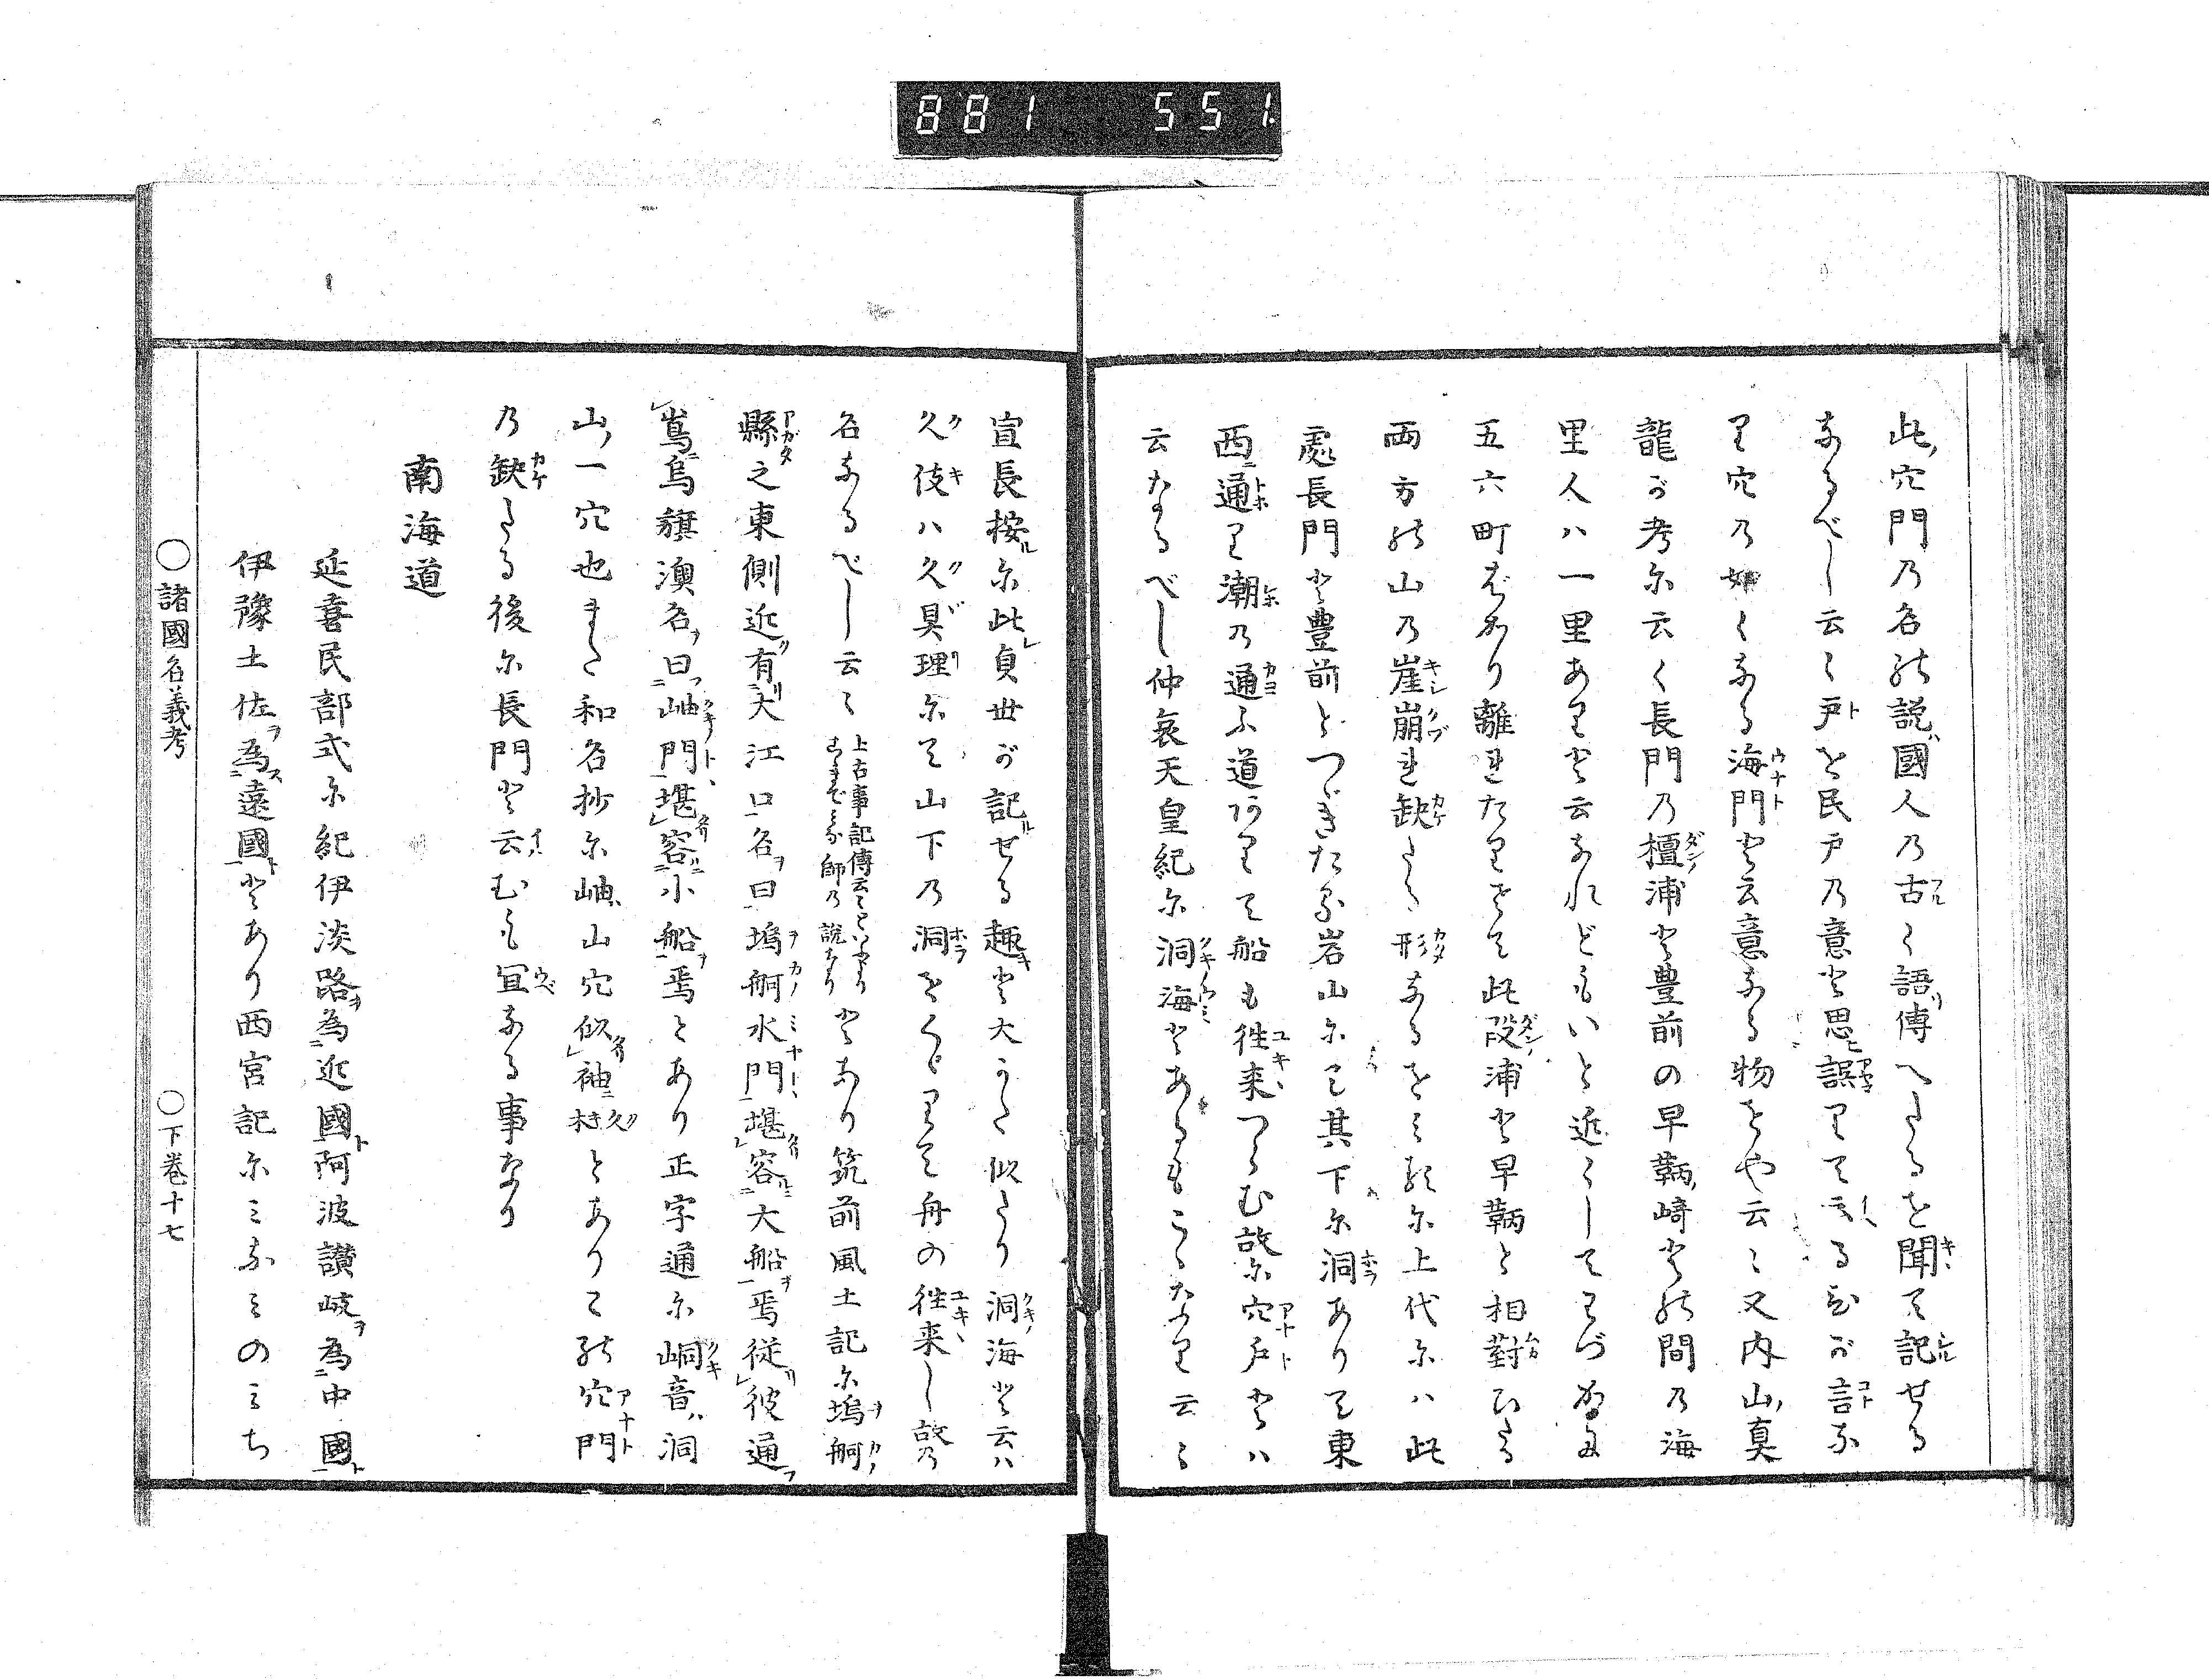 881 551
此穴門乃名能説ハ國人乃古く語リ傳へたるを聞て記せる
なるべし云々戸を民戸乃意と思ヒ誤りて云る也が言な
り穴乃如くなる海門と云意なる物をや云々又内山真
龍が考尓云く長門乃檀浦と豊前の早鞆崎と能間乃海
里人ハ一里ありと云なれどもいと近くしてわづかに
五六町ばかり離れたりとて此段浦と早鞆と相對ひたる
両方能山乃崖崩れ缺たる形なるを見れ尓上代尓ハ此
處長門と豊前とつゞきたる岩山尓て其下尓洞ありて東
西ニ通り潮乃通ふ道ありて船も徃来つらむ故尓穴戸とハ
云なるべし仲哀天皇紀尓洞海とあるもこゝなり云々
宣長按ル尓此貞世が記せる趣と大かた似たり洞海と云ハ
久伎ハ久具理尓て山下乃洞をくゞりて舟の徃来し故乃
名なるべし云々
上古事記傳云々といへり
こゝまでみな師乃説なり
とあり筑前風土記尓塢舸
縣之東側近有大江口名曰塢舸水門堪容大船焉従彼通
嶌烏旗澳名曰岫門堪容小船焉とあり正字通尓峒音洞
山一穴也また和名抄尓岫山穴似袖久木とありこ能穴門
乃缺たる後尓長門と云むも冝なる事なり
南海道
延喜民部式尓紀伊淡路為近國阿波讃岐為中國
伊豫土佐為遠國とあり西宮記尓みなみのみち
〇諸國名義考
〇下巻十七